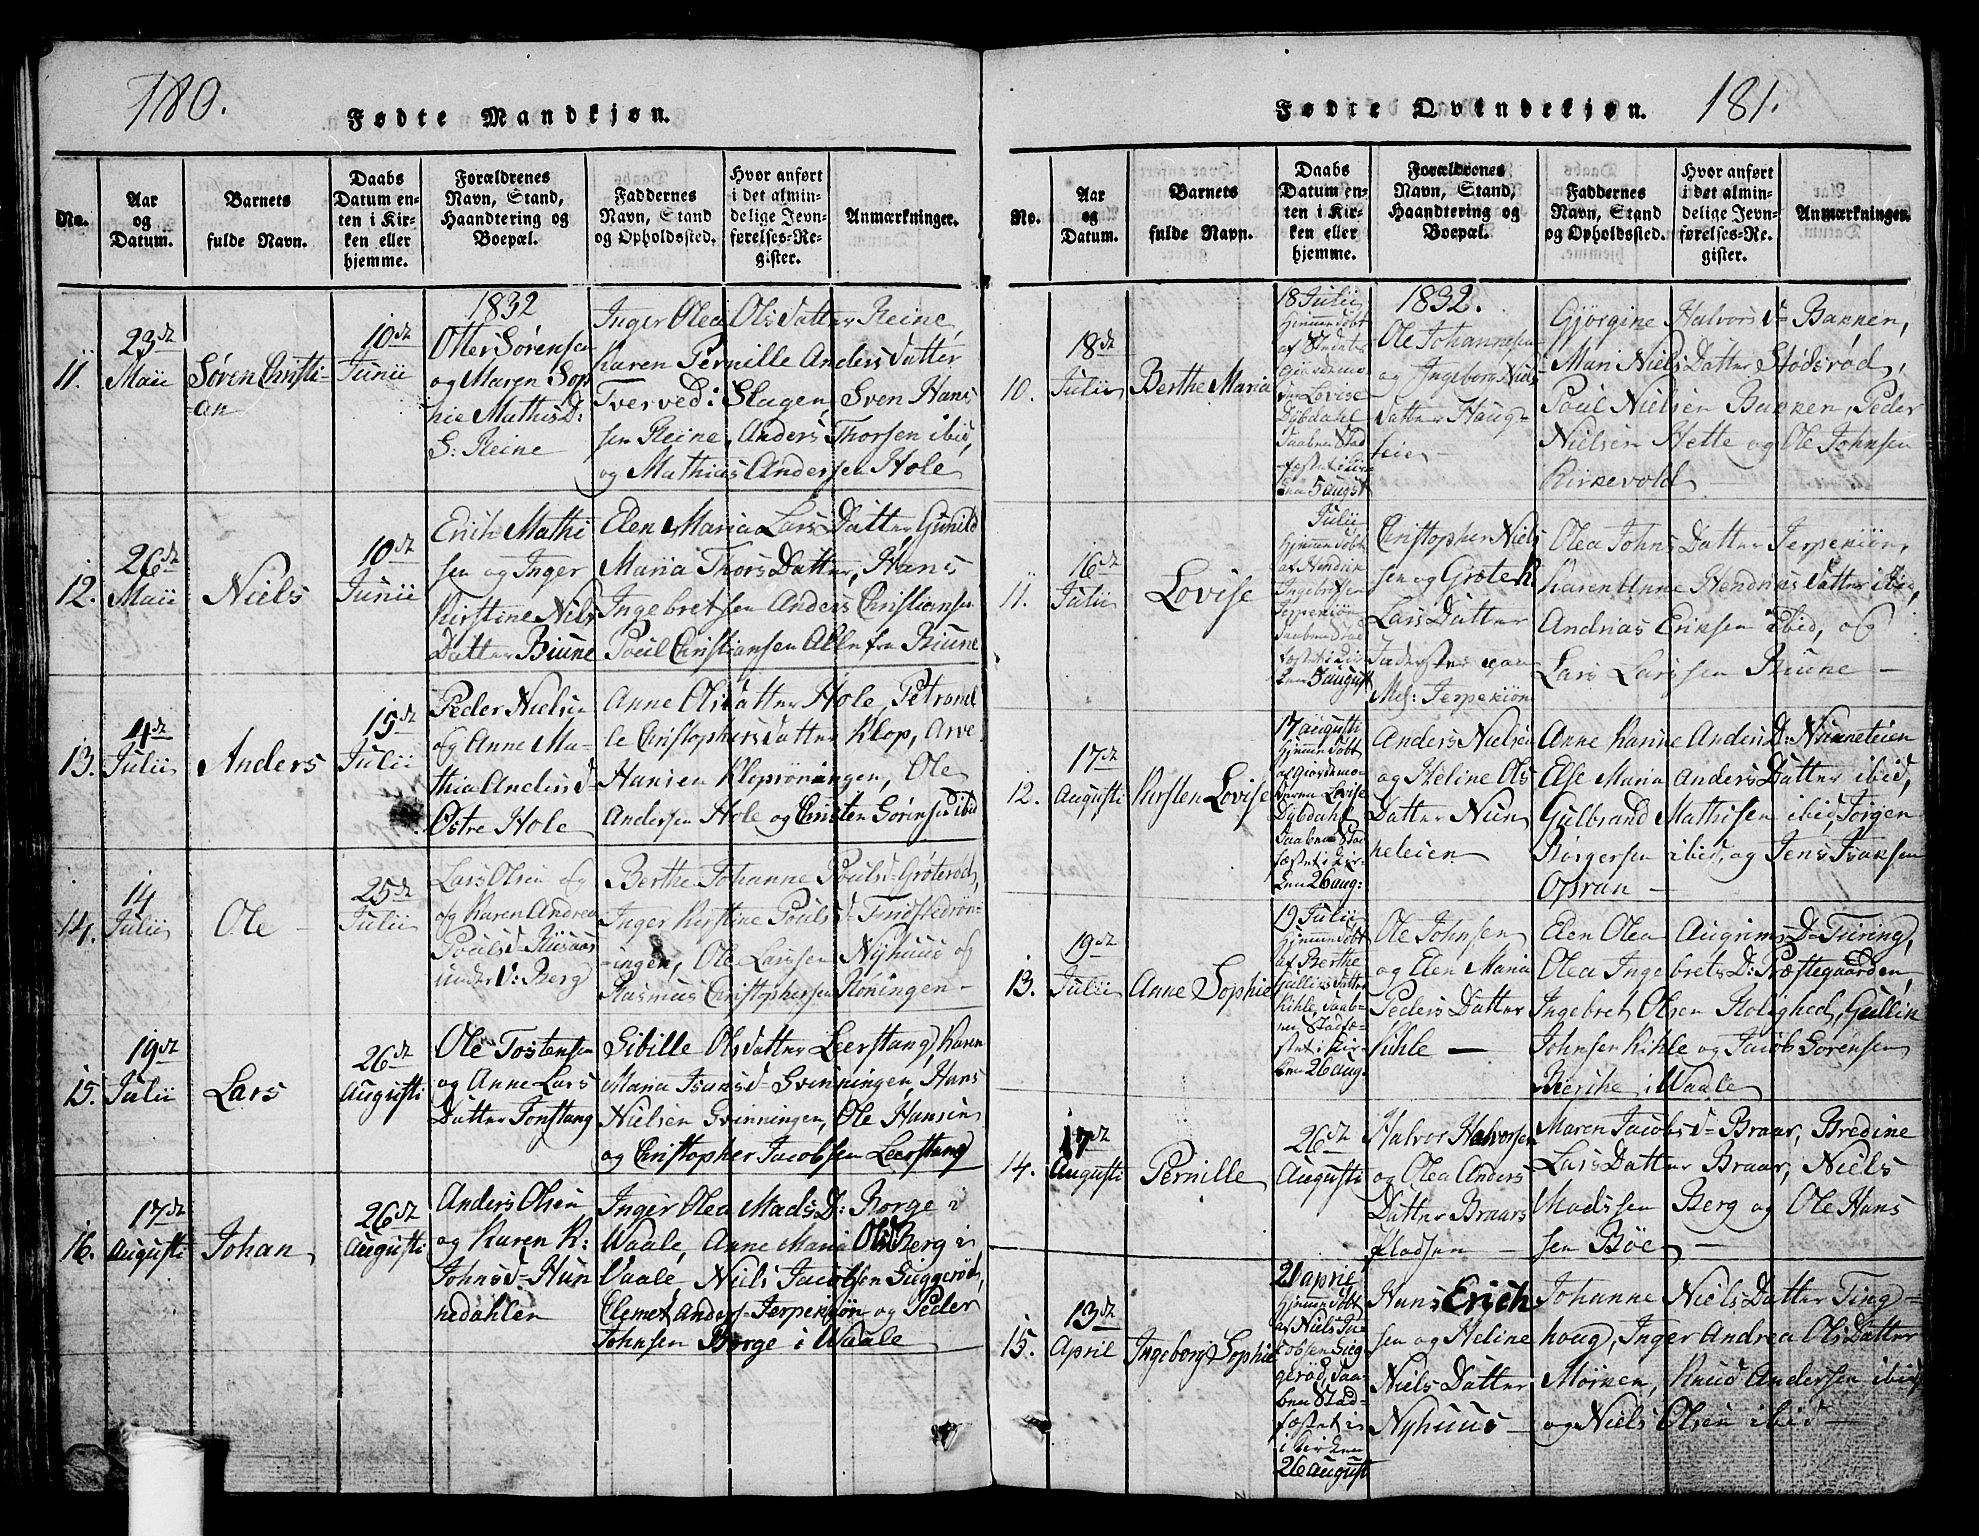 180.
Fødte Mandkjøn.
No.
Aar
og
Datum.
Barnets
fulde Navn.
Daabs
Datum en-
ten i Kir-
ken eller
hjemme.
Forældrenes
Navn, Stand,
Haandtering og
Boepæl.
Faddernes
Navn, Stand
og Opholdssted.
Hvor anført
i det almin-
delige Jevn-
førelses-Re-
gister.
Anmærkninger.
1832
11.
23de
Maii
Søren Christi-
an
10de
Junii
Otter Sørensen
og Maren Sop
hie Mathis D:
S: Reine
Inger Olea Olsdatter Reine,
Karen Pernille Anders Datter
Tverved i Slagen, Sven Hans
sen Reine, Anders Thorsen ibid,
og Mathias Andersen Hole
12.
26de
Maii
Niels
10de
Junii
Erich Mathi
sen og Inger
Kirstine Nils
Datter Biune
Elen Maria Lars Datter, Gunild
Maria Thors Datter, Hans
Ingebretsen Anders Christiansen
Poul Christiansen Alle fra Biune
13.
4de
Julii
Anders
15de
Julii
Peder Nielsen
og Anne Ma-
thia Anders d-
Østre Hole
Anne Olsdatter Hole, Petronel
le Christophersdatter Klop, Arve
Hansen Kloprøningen, Ole
Andersen Hole og Christen Sørensen ibid
14.
14
Julii
Ole
25de
Julii
Lars Olsen og
og Karen Andrea
Pouls d-
under V: Berg
Berthe Johanne Pouls d- Grøterød,
Inger Kirstine Pouls d-
ingen, Ole Larssen Nyhuus og
Rasmus Christophersen Røningen-
15.
19de
Julii
Lars
26de
Augusti
Ole Tostensen
og Anne Lars
Datter Jonstang
Sibille Olsdatter Leerstang, Karen
Maria Isaks d- Svinningen, Hans
Nielsen Svinningen, Ole Hansen
og Christopher Jacobsen Leerstang
16.
17de
Augusti
Johan
26de
Augusti
Anders Olsen
og Karen K:
Johns d- Hun
nedahlen
Inger Olea Mads D: Borge i
Waale, Anne Maria Ols d Berg i
Vaale Niels Jacobsen Sieggerød,
Clemet Anders- Jerpekiøn og Peder
Johnsen Borge i Waale
181.
Fødte Qvindekjøn.
No.
Aar
og
Datum.
Barnets
fulde Navn.
Daabs
Datum en-
ten i Kir-
ken eller
hjemme.
Forældrenes
Navn, Stand,
Haandtering og
Boepæl.
Faddernes
Navn, Stand
og Opholdssted.
Hvor anført
i det almin-
delige Jevn-
førelses-Re-
gister.
Anmærkninger.
1832.
10.
18de
Julii
Berthe Maria
18 Julii
hjemmedøbt
af
Giordemo
der Lovise
Dybdahl
Daaben Stad
fæstet i Kir
ken 5 august
Ole Johannesen
og Ingeborg Niels
datter Haug-
teie-
Gjørgine Halvors d- Bakken,
Mari Niels Datter Stødsrød,
Poul Nielsen Bakken, Peder
Nielsen Hette og Ole Johnsen
Kirkevold
11.
16de
Julii
Lovise
Julii
hjemmedøbt
af Hendrik
Ingebretsen
Jerpekiøn
Daaben Stad
fæstet i Kir
ken 5 august
Christopher Niels
sen og Grøte K
Lars Datter
Inderster paa
Mel: Jerpekiøn
Olea Johns Datter Jerpekiøn,
Karen Anne Hendriks datter ibid,
Andrias Eriksen ibid, og
Lars Larssen Biune -
12.
17de
Augusti
Kirsten Lovise
17 augusti
hjemmedøbt
af Giordemo-
deren Lovise
Dybdahl
Daaben Stad
fæstet i Kir-
ken 26 aug:
Anders Nielsen
og Heline Ols
Datter Nun
keleien
Anne Karine Anders D: Nunneteien
Else Maria Anders Datter ibid,
Gulbrand Mathisen ibid, Jørgen
Børgersen ibid, og Jens Isaksen
Opran -
13.
19de
Julii
Anne Sophie
19 Julii
hjemmedøbt
af Berthe
Gulliks datter
Kihle, Daab-
en Stadfæ-
stet i Kir-
ken 26 aug.
Ole Johnsen
og Elen Maria
Peders Datter
Kihle -
Elen Olea Augrims D- Turing,
Olea Ingebrets D: Præstegaarden,
Ingebret Olsen Rolighed, Gullik
Johnsen Kihle og Jacob Sørensen
Bierche i Waale
14.
17de
Augusti
Pernille
26de
Augusti
Halvor Halvorsen
og Olea Anders
Datter Braars
kladsen -
Maren Jacobs d- Braar, Bredine
Lars Datter Braar, Niels
Madssen Berg og Ole Hans
sen Bøe -
15.
13de
April
Ingeborg Sophie
21 aprie
hjemmedøbt
af Niels Ja-
cobsen Sieg
gerød, Daa-
ben Stad-
fæstet i
i Kirken
26 august
Hans Erich
sen og Heline
Niels Datter
Nyhuus -
Johanne Niels Datter Ting-
houg, Inger Andrea Ols Datter
Mørken, Knud Andersen ibid
og Niels Olsen ibid -